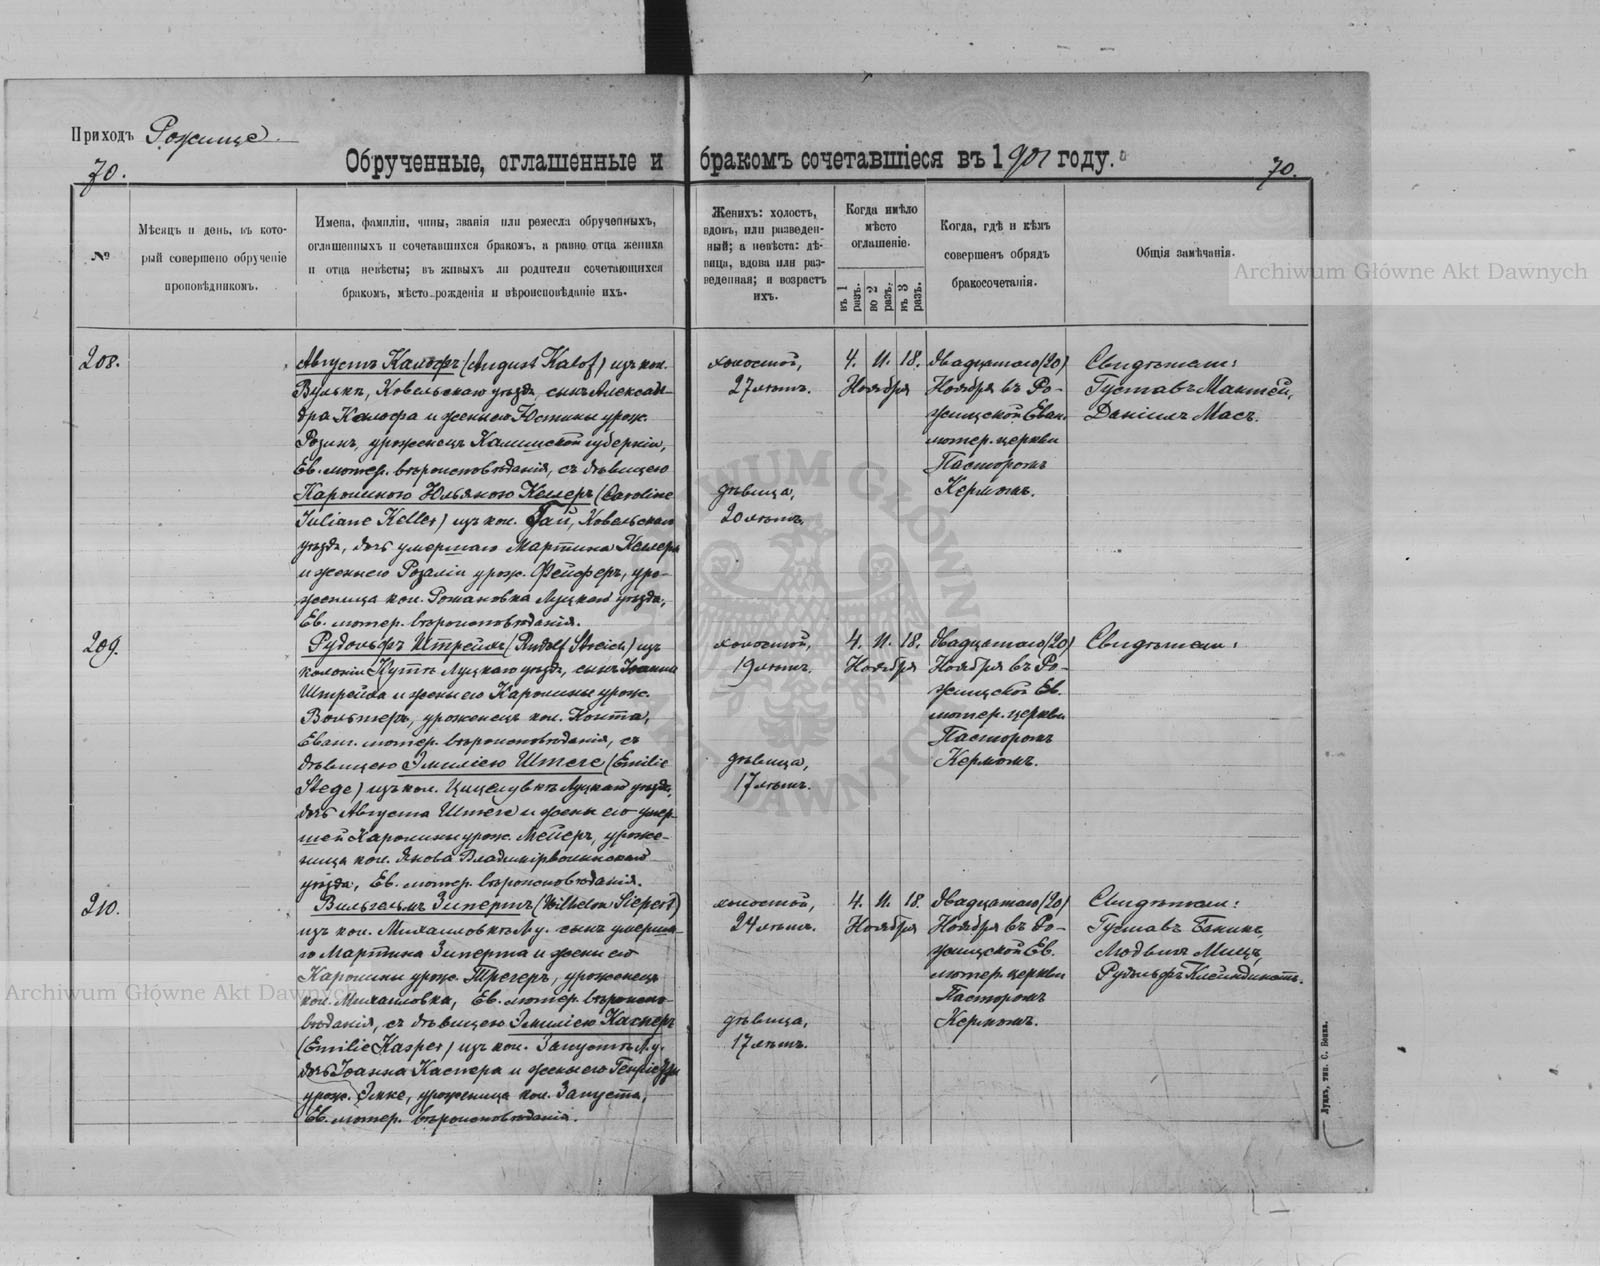 Приходъ Рожище.
70.
Обрученные, оглашенные и бракомъ сочетавшіеся въ 1901 году.
70.
№
Мѣсяцъ и день, въ кото-
рый совершено обрученіе
проповѣдникомъ.
Имена, фамиліи, чины, званія или ремесла обрученныхъ,
оглашенныхъ и сочетавшихся бракомъ, а равно отца жениха
и отца невѣсты; въ живыхъ ли родители сочетающихся
бракомъ, мѣсто рожденія и вѣроисповѣданіе ихъ.
Женихъ: холостъ,
вдовъ, или разведен-
ный; а невѣста: дѣ-
вица, вдова или раз-
веденная; и возрастъ
ихъ.
Когда имѣло
мѣсто
оглашеніе.
въ 1 разъ.
во 2 разъ.
въ 3 разъ.
Когда, гдѣ и кѣмъ
совершенъ обрядъ
бракосочетанія.
Общія замѣчанія.
208.
Августъ Калофъ (August Kalof) изъ кол.
Вулькѣ, Ковельскаго уѣзда, сынъ Алексан-
дра Калофа и жены его Юстины урож.
Розинъ, уроженецъ Калишской губерніи,
Ев. лютер. вѣроисповѣданія, съ дѣвицею
Каролиною Юльяною Келлеръ (Caroline
Juliane Keller) изъ кол. Гай, Ковельскаго
уѣзда, дочь умершаго Мартина Келлера
и жены его Розаліи урож. Фейферъ, уро-
женица кол. Рожановка Луцкаго уѣзда,
Ев. лютер. вѣроисповѣданія.
холостой,
27 лѣтъ.
дѣвица,
20 лѣтъ.
4. 11. 18.
Ноября
двадцатаго (20)
Ноября въ Ро-
жищской Еван.
лютер. церкви
Пасторомъ
Кермомъ.
Свидѣтели:
Густавъ Мантей,
Даніилъ Масъ.
209.
Рудольфъ Штрейхъ (Rudolf Streich) изъ
колоніи Кутъ Луцкаго уѣзда, сынъ Іоанна
Штрейха и жены его Каролины урож.
Вольтеръ, уроженецъ кол. Конта,
Еванг. лютер. вѣроисповѣданія, съ
дѣвицею Эмиліею Штеге (Emilie
Stege) изъ кол. Луцкаго уѣзда,
дочь Августа Штеге и жены его умер-
шей Каролины урож. Мейеръ, уроже-
ница кол. Янова Владимірволынскаго
уѣзда, Ев. лютер. вѣроисповѣданія.
холостой,
19 лѣтъ.
дѣвица,
17 лѣтъ.
4. 11. 18.
Ноября
двадцатаго (20)
Ноября въ Ро-
жищской Ев.
лютер. церкви
Пасторомъ
Кермомъ.
Свидѣтели:
210.
Вильгельмъ Зипертъ (Wilhelm Siepert)
изъ кол. Михаиловкѣ Л. у. сынъ умерша-
го Мартина Зиперта и жены его
Каролины урож. Трегеръ, уроженецъ
кол. Михаиловка, Ев. лютер. вѣроиспо-
вѣданія, съ дѣвицею Эмиліею Касперъ
(Emilie Kasper) изъ кол. Запустъ Л. у.
дочь Іоанна Каспера и жены его Генріетты
урож. Эмке, уроженица кол. Запуста,
Ев. лютер. вѣроисповѣданія.
холостой,
24 лѣтъ.
дѣвица,
17 лѣтъ.
4. 11. 18.
Ноября
двадцатаго (20)
Ноября въ Ро-
жищской Ев.
лютер. церкви
Пасторомъ
Кермомъ.
Свидѣтели:
Густавъ
Людвигъ Мицъ,
Рудольфъ Клейндинстъ.
Луцкъ, тип. С. Бонка.
Archiwum Główne Akt Dawnych
Archiwum Główne Akt Dawnych